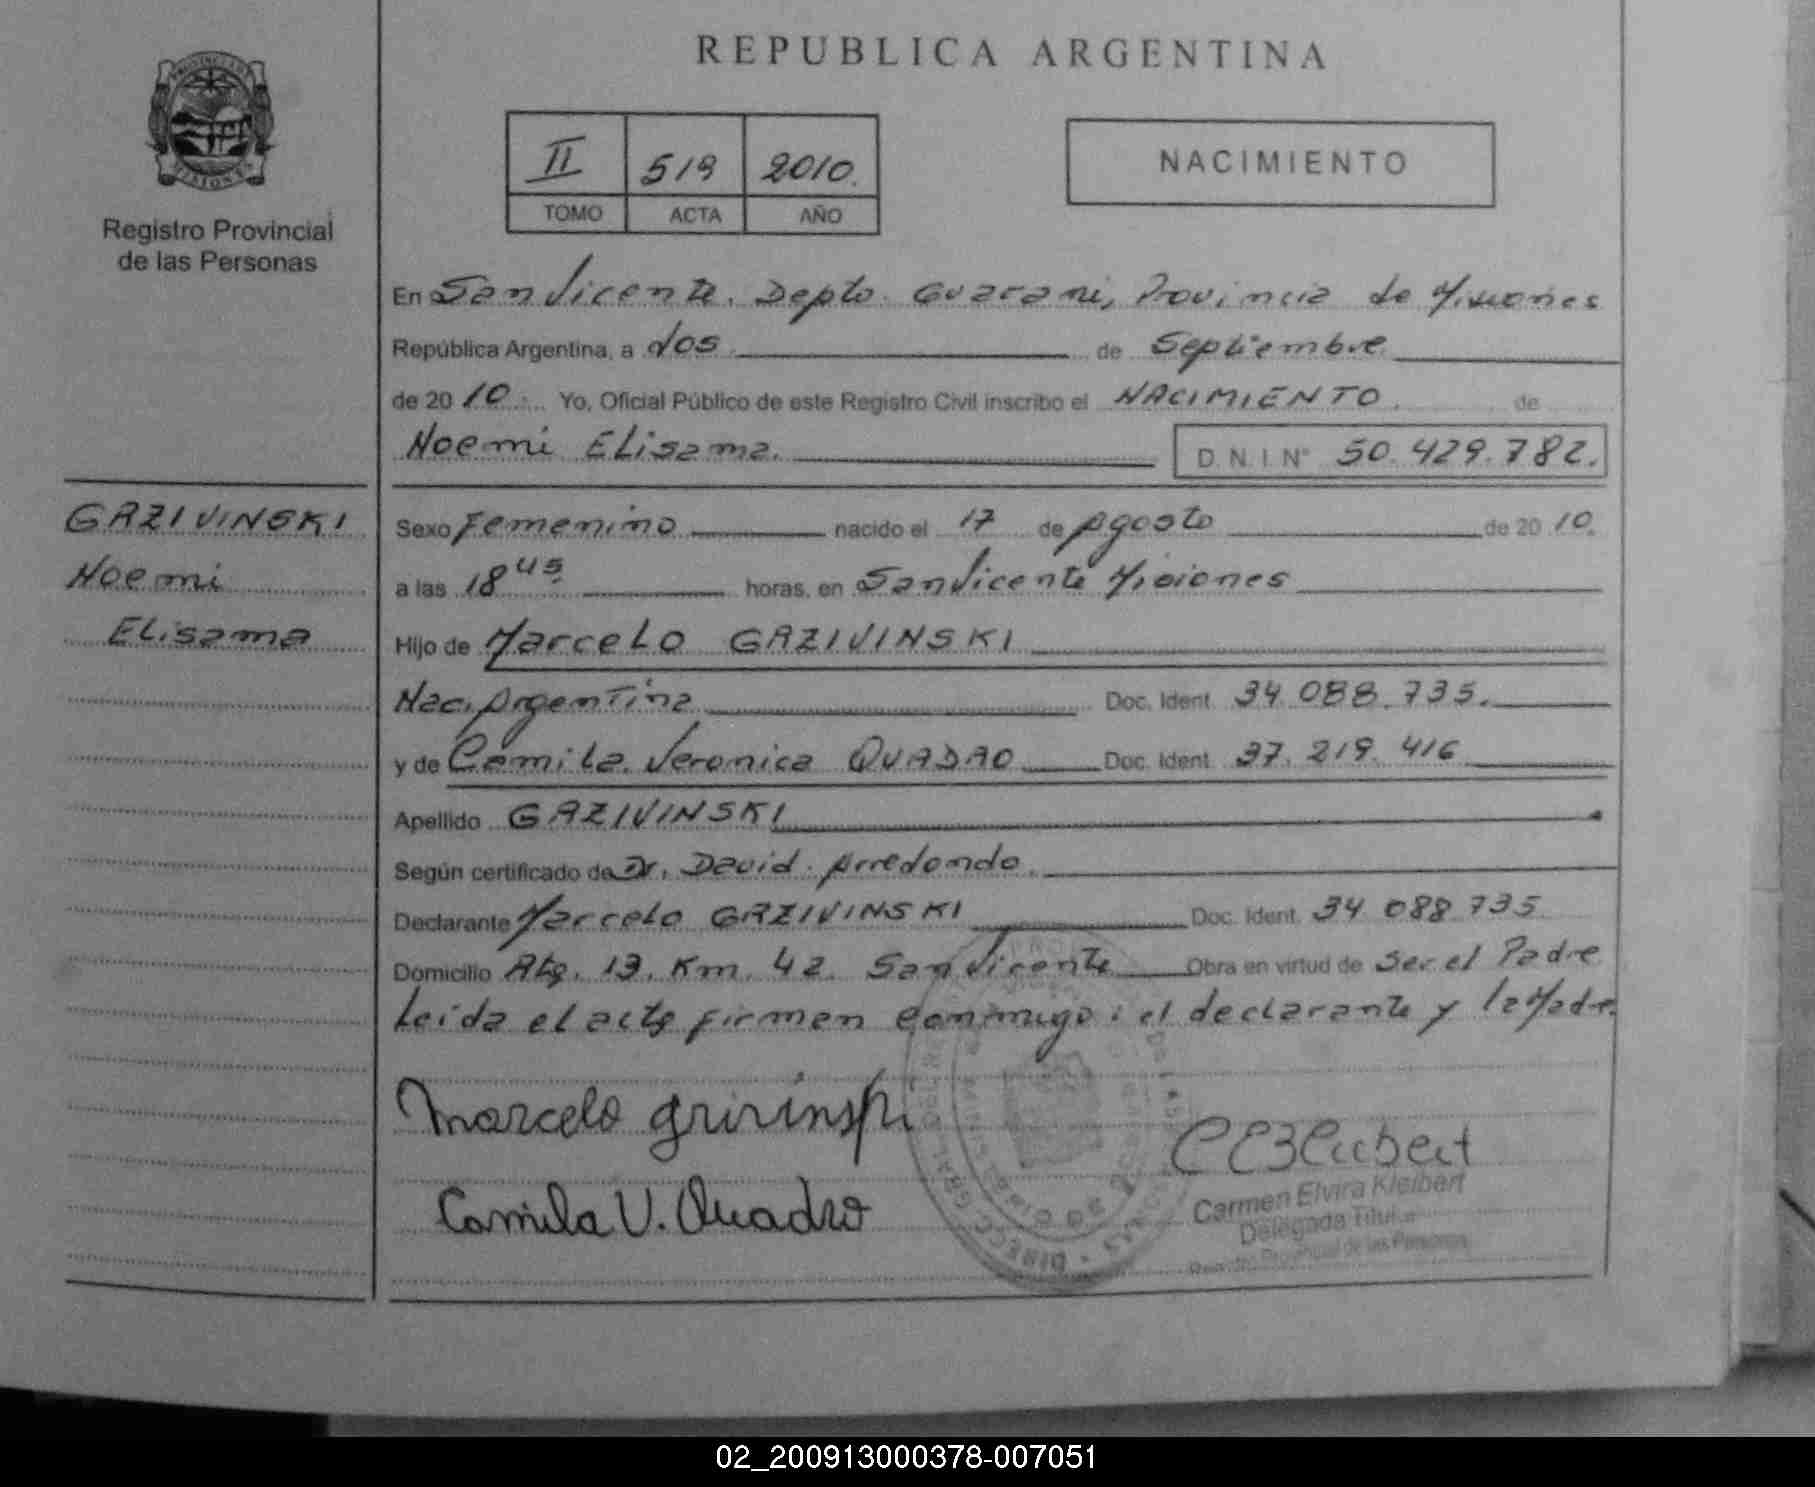 REPUBLICA ARGENTINA
II 519 2010.
TOMO ACTA AÑO
NACIMIENTO
Registro Provincial
de las Personas
En San Vicente. Depto. Guarani, Provincia de Misiones
República Argentina, a dos de Septiembre
de 2010. Yo, Oficial Público de este Registro Civil inscribo el NACIMIENTO. de
Noemi Elisama. D.N.I. Nº 50.429.782.
GRZIVINSKI
Noemi
Elisama
Sexo Femenino nacido el 17 de Agosto de 2010.
a las 18 45 horas, en San Vicente Misiones
Hijo de Marcelo GRZIVINSKI
Nac. Argentina Doc. Ident. 34.088.735.
y de Camila Veronica QUADRO Doc. Ident. 37.219.416
Apellido GRZIVINSKI
Según certificado de Dr. David Arredondo.
Declarante Marcelo GRZIVINSKI Doc. Ident. 34 088 735
Domicilio Rta. 13. Km. 42. San Vicente Obra en virtud de ser el Padre
Leida el acta firman conmigo: el declarante y la Madre.
Marcelo
Camila V. Quadro
Carmen Elvira Kleibert
Delegada Titular
Registro Provincial de las Personas
02_200913000378-007051